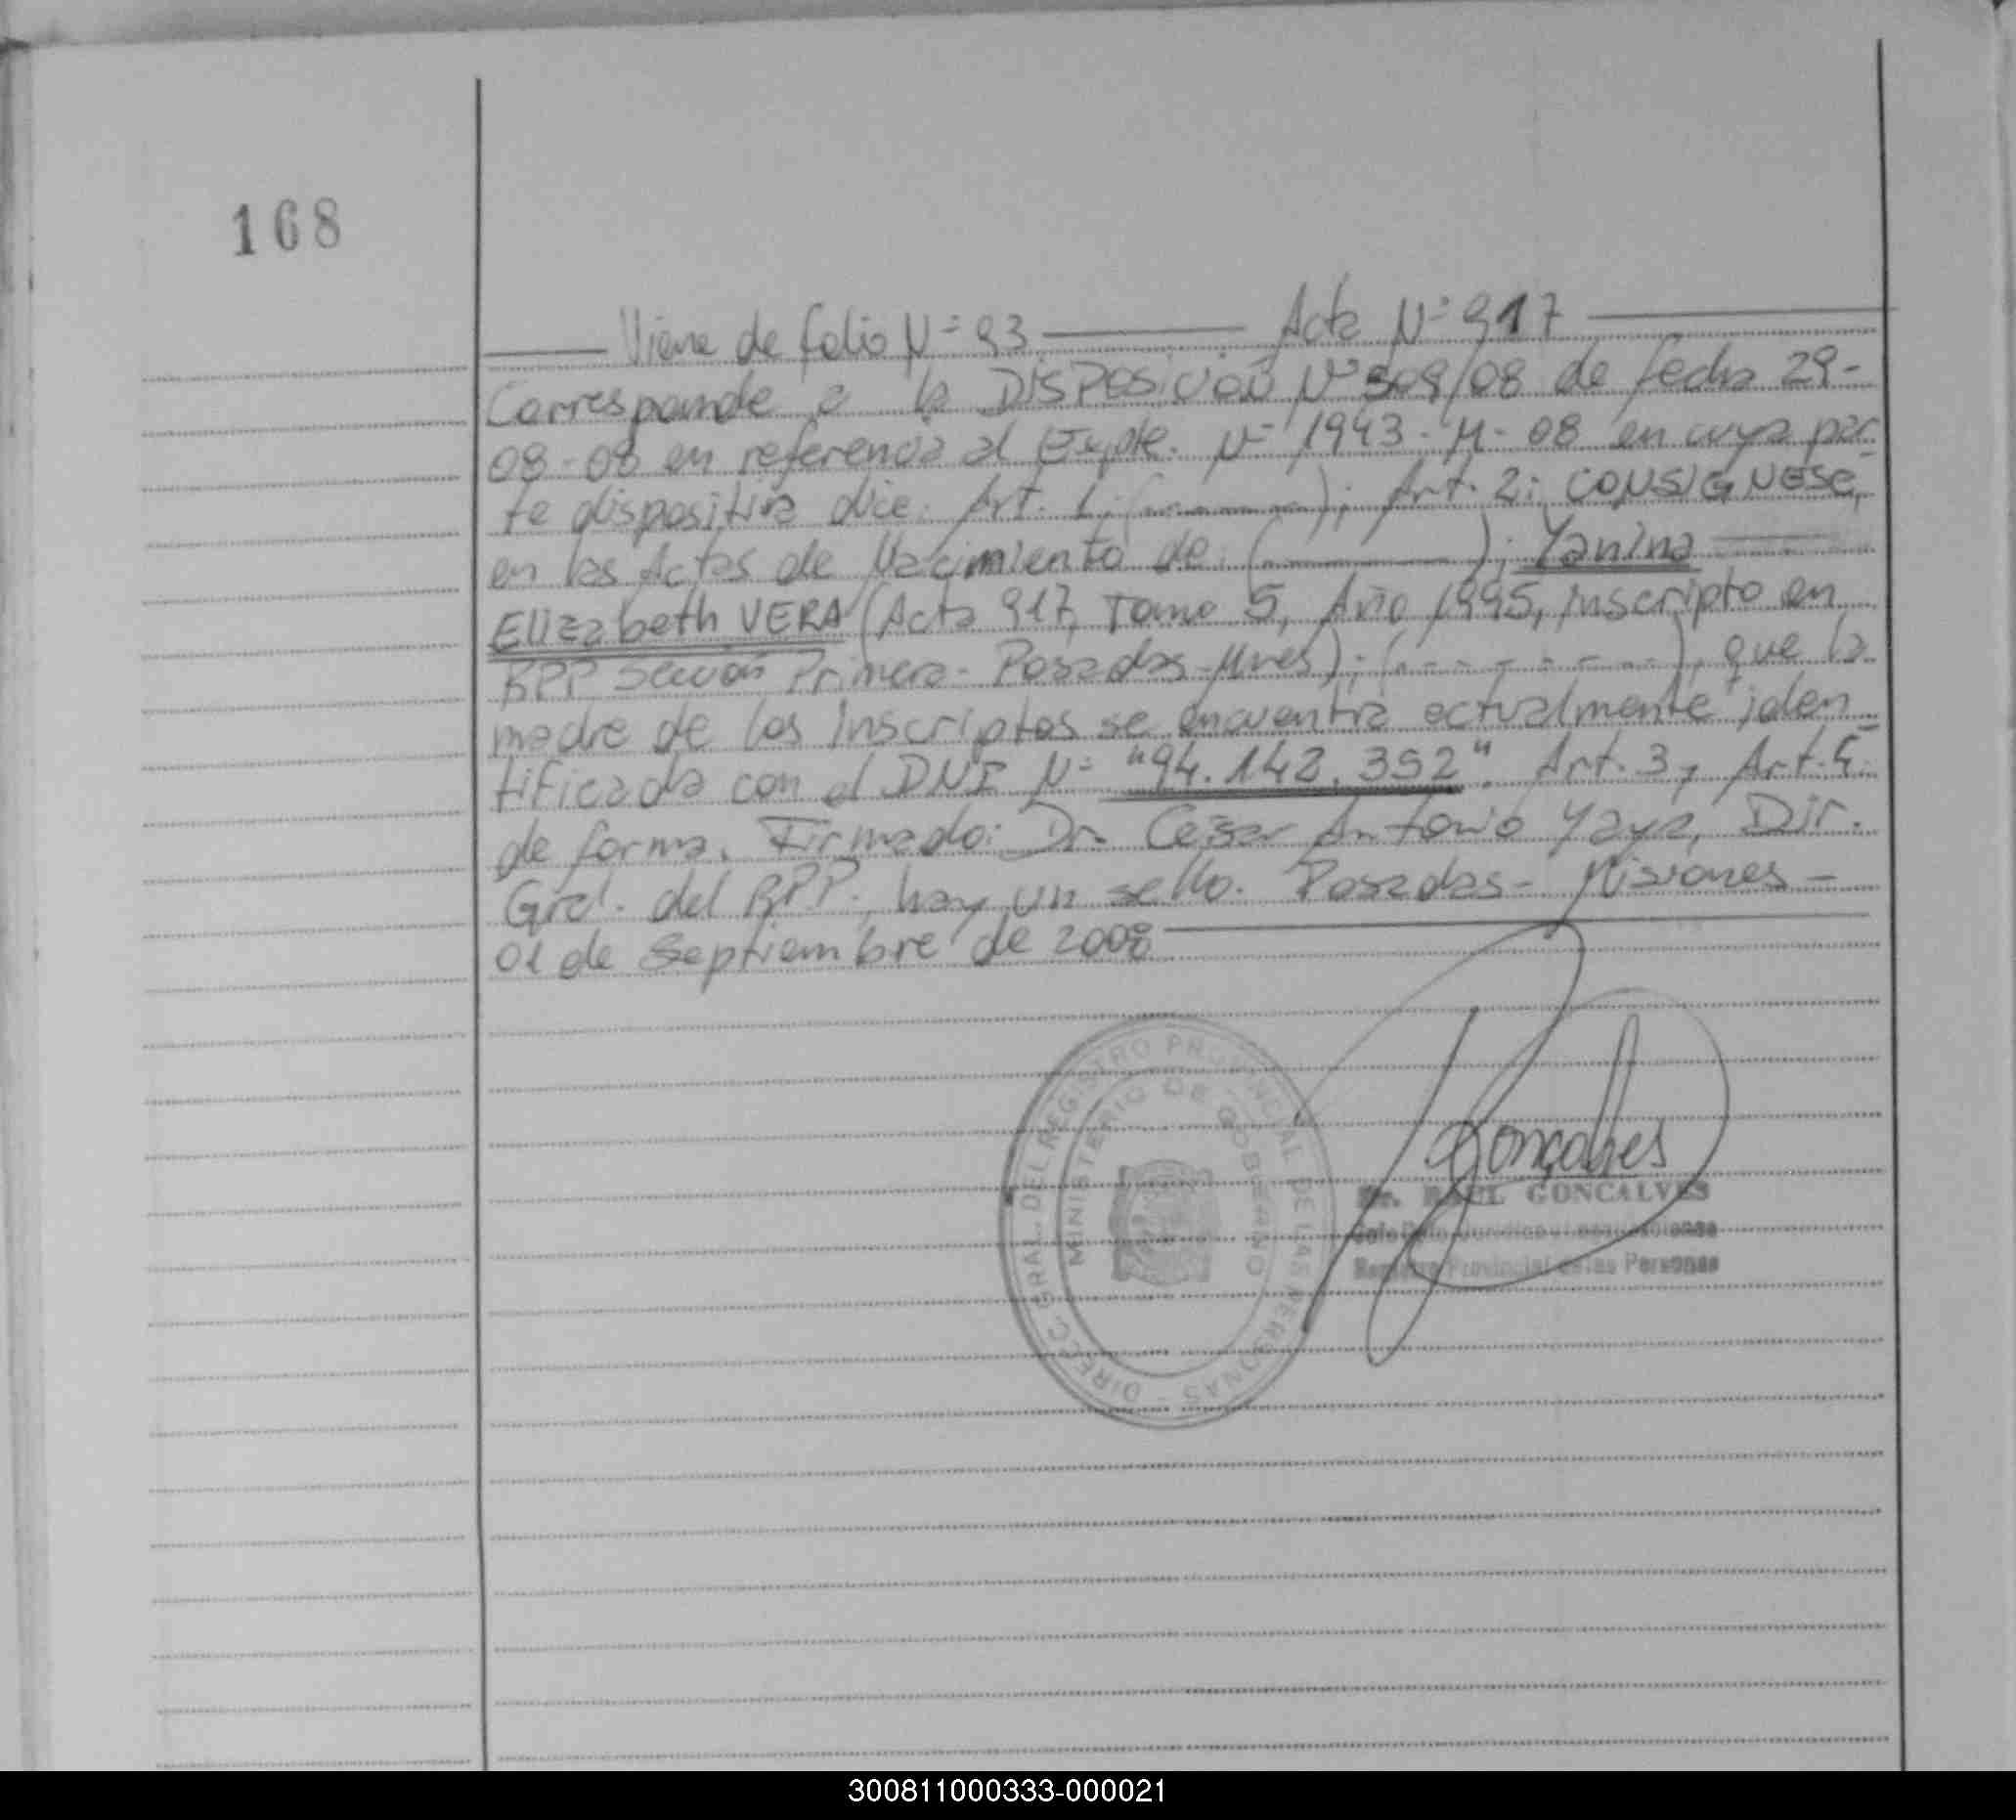 168
Viene de folio Nº 93 Acta Nº 917
Corresponde a la DISPOSICIÓN Nº 509/08 de fecha 29-
08-08 en referencia al Expte. Nº 1943-M-08 en cuya par-
te dispositiva dice: Art. 1: (--------); Art. 2: CONSIGNESE,
en las Actas de Nacimiento de: (--------); Yanina
Elizabeth VERA (Acta 917, Tomo 5, Año 1995, inscripto en
RPP Sección Primera- Posadas-Mnes); (--------), que la
madre de los inscriptos se encuentra actualmente iden-
tificada con el DNI Nº "94.142.352". Art. 3, Art. 4:
de forma. Firmado: Dr. César Antonio Yaya, Dir.
Gral. del RPP., hay un sello. Posadas- Misiones-
01 de Septiembre de 2008
DIRECC. GRAL. DEL REGISTRO PROVINCIAL DE LAS PERSONAS -
MINISTERIO DE GOBIERNO
Gonçalves
Dr. RAUL GONCALVES
Registro Provincial de las Personas
300811000333-000021